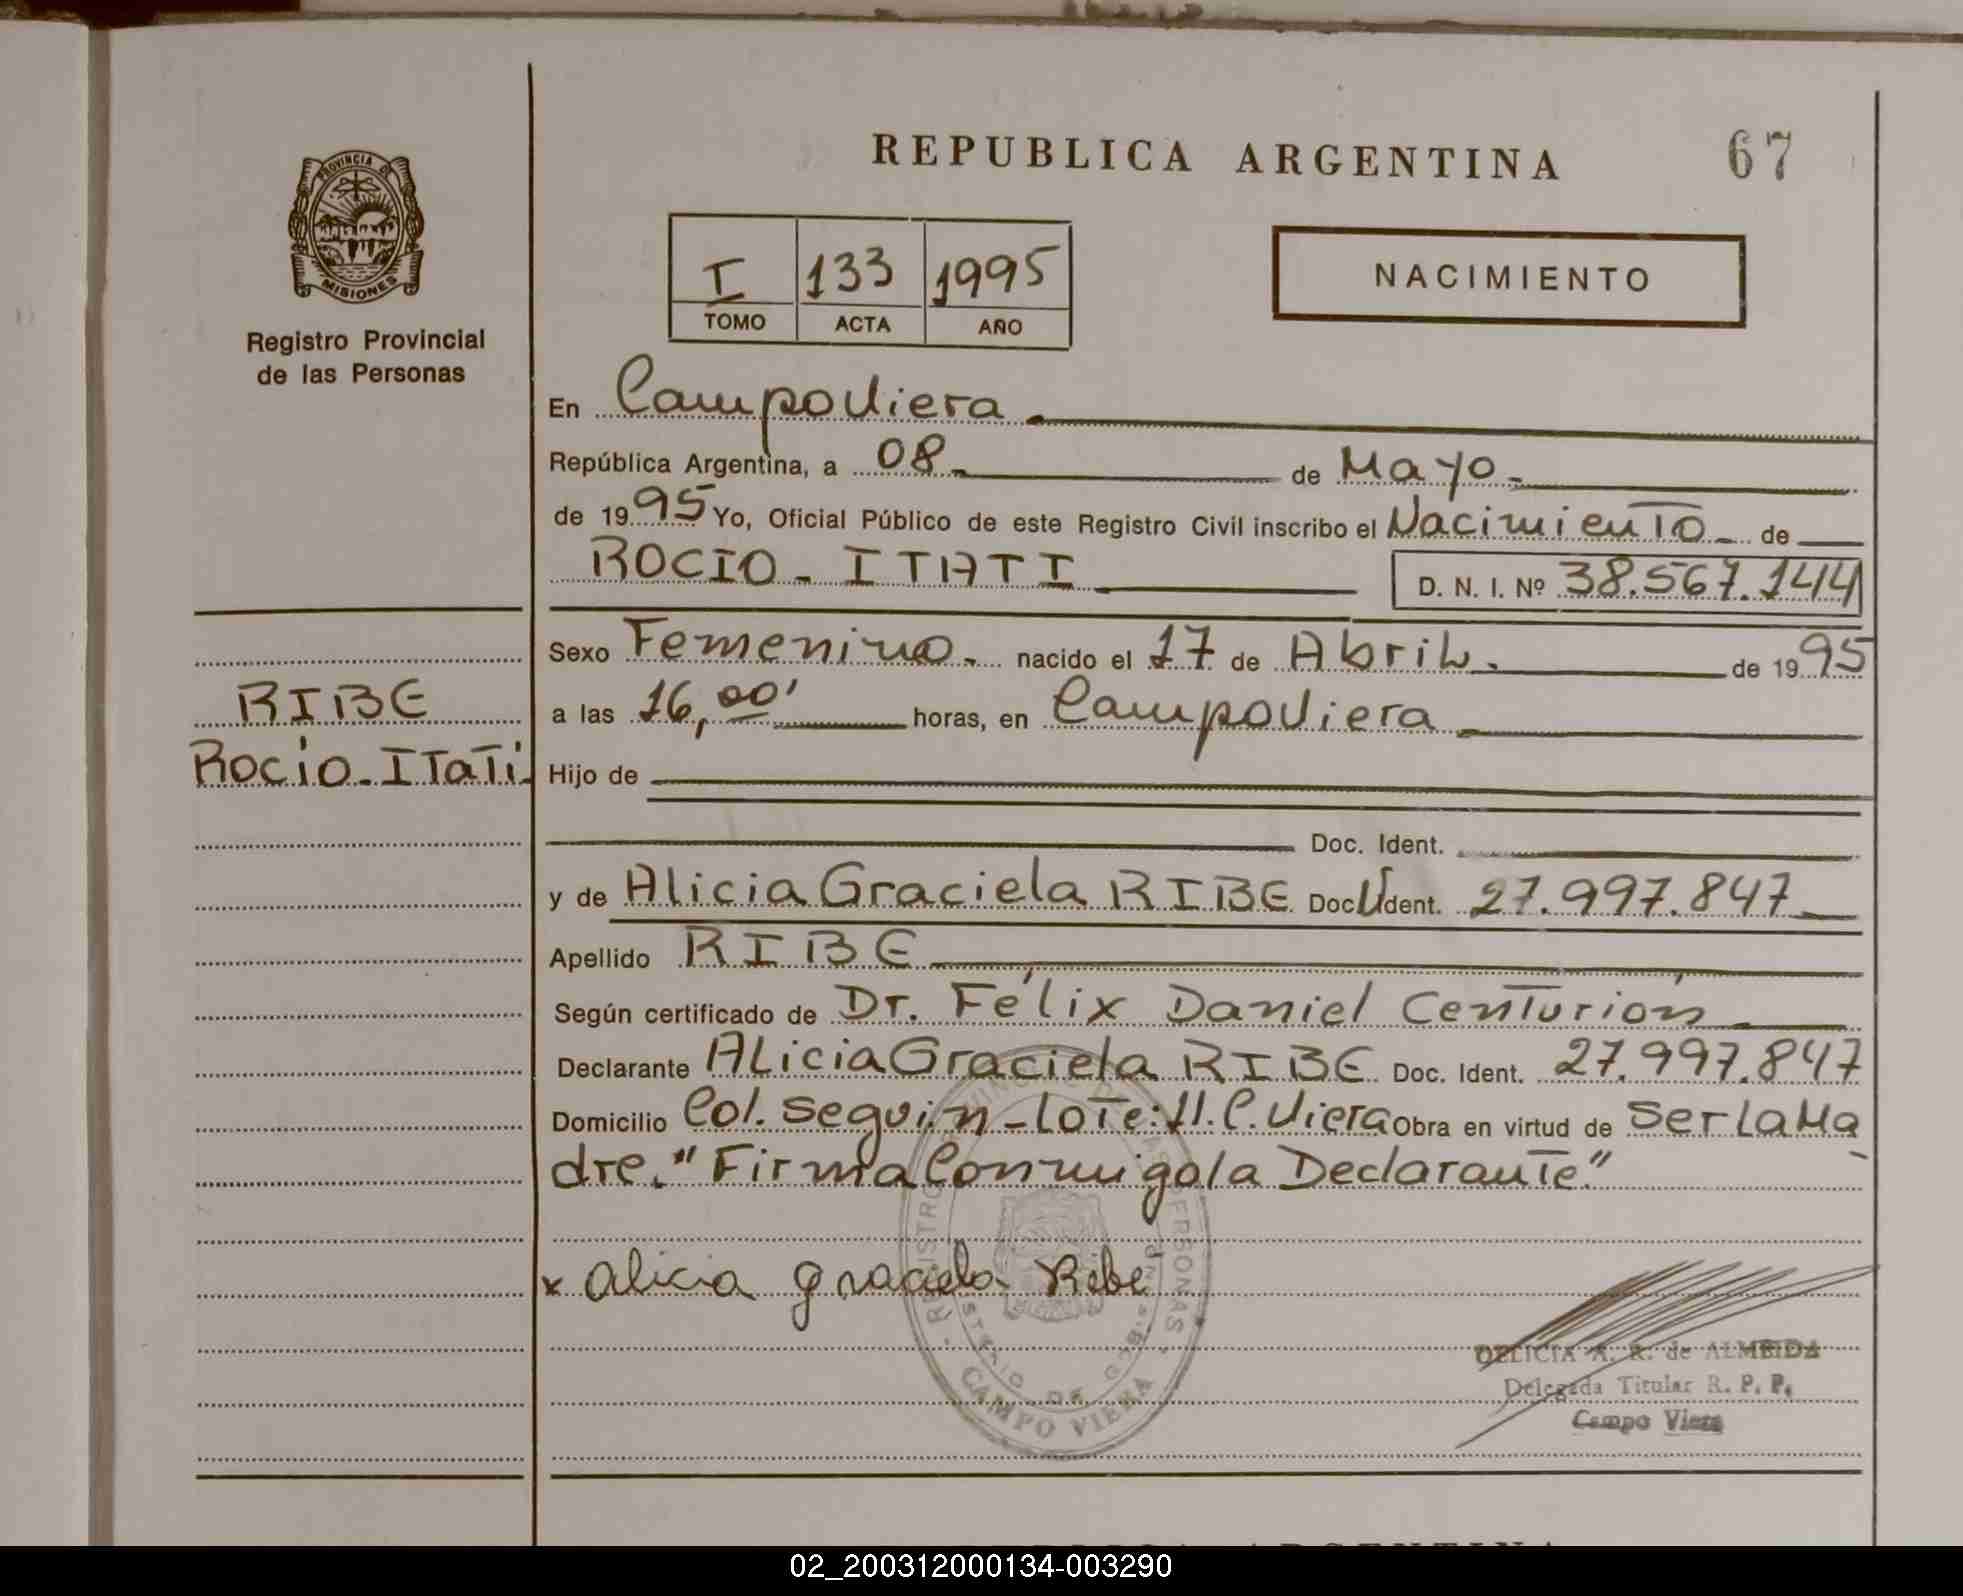 REPUBLICA ARGENTINA
67
PROVINCIA DE
MISIONES
Registro Provincial
de las Personas
I 133 1995
TOMO ACTA AÑO
NACIMIENTO
En Campo Viera
República Argentina, a 08 de Mayo
de 1995 Yo, Oficial Público de este Registro Civil inscribo el Nacimiento de
ROCIO - ITATI D. N. I. Nº 38.567.144
Sexo Femenino nacido el 17 de Abril de 1995
a las 16,00' horas, en Campo Viera
Hijo de
Doc. Ident.
y de Alicia Graciela RIBE Doc. Ident. 27.997.847
Apellido RIBE
Según certificado de Dr. Félix Daniel Centurión
Declarante Alicia Graciela RIBE Doc. Ident. 27.997.847
Domicilio Col. Seguín - Lote: 11. C. Viera Obra en virtud de ser la Ma
dre. "Firma Conmigo la Declarante"
x alicia graciela Ribe
RIBE
Rocio - Itati
CAMPO VIERA
DELICIA A. R. de ALMEIDA
Delegada Titular R. P. P.
Campo Viera
02_200312000134-003290